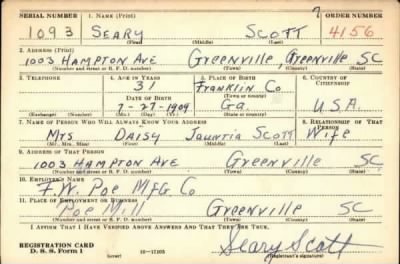 SERIAL NUMBER 1. NAME (Print) ? ORDER NUMBER
1093 SEARY SCOTT 4156
(First) (Middle) (Last)
2. ADDRESS (Print)
1003 HAMPTON AVE Greenville, Greenville SC
(Number and street or R. F. D. number) (Town) (County) (State)
3. TELEPHONE 4. AGE IN YEARS 5. PLACE OF BIRTH 6. COUNTRY OF CITIZENSHIP
31 Franklin Co
DATE OF BIRTH (Town or county)
7-27-1909 Ga. U.S.A.
(Exchange) (Number) (Mo.) (Day) (Yr.) (State or country)
7. NAME OF PERSON WHO WILL ALWAYS KNOW YOUR ADDRESS 8. RELATIONSHIP OF THAT PERSON
Mrs Daisy Scott Wife
(Mr., Mrs., Miss) (First) (Middle) (Last)
9. ADDRESS OF THAT PERSON
1003 HAMPTON AVE Greenville SC
(Number and street or R. F. D. number) (Town) (County) (State)
10. EMPLOYER'S NAME
F.W. Poe MFG Co
11. PLACE OF EMPLOYMENT OR BUSINESS
Poe Mill Greenville SC
(Number and street or R. F. D. number) (Town) (County) (State)
I AFFIRM THAT I HAVE VERIFIED ABOVE ANSWERS AND THAT THEY ARE TRUE.
REGISTRATION CARD
D. S. S. Form 1 (over) 16-17105 Seary Scott
(Registrant's signature)